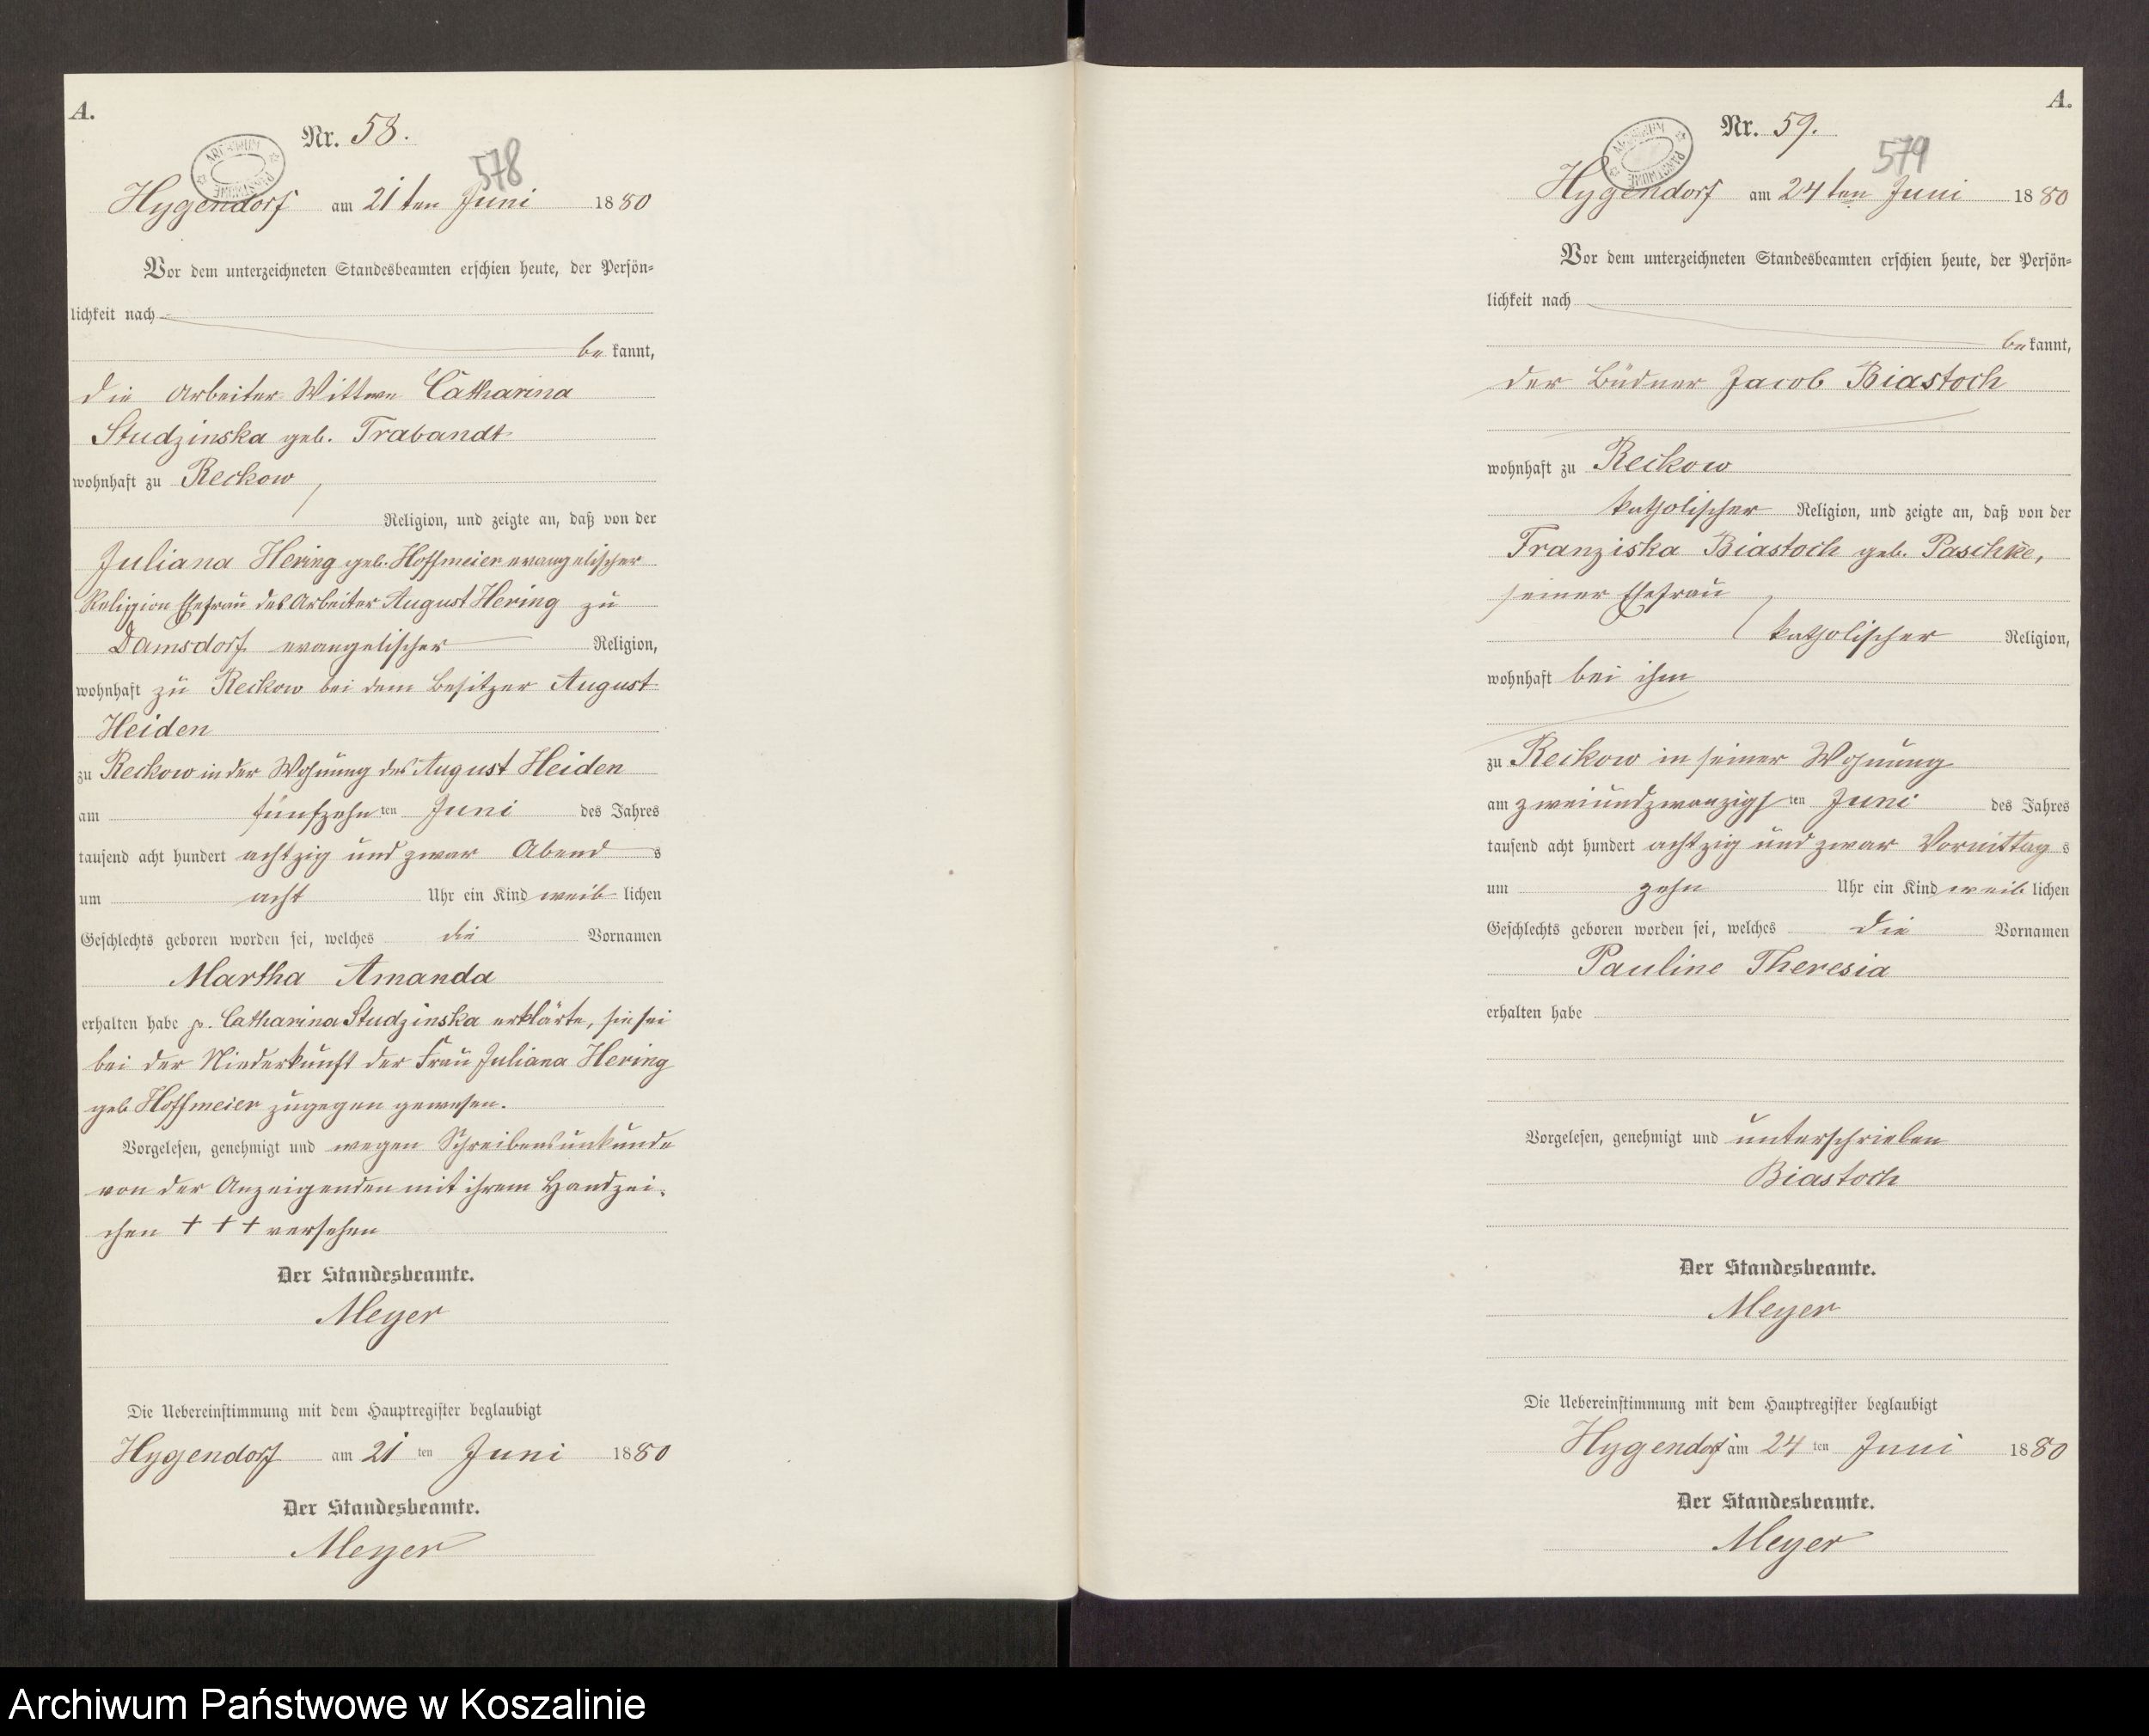 A.
Nr. 58.
578
Hygendorf am 21ten Juni 1880
Vor dem unterzeichneten Standesbeamten erschien heute, der Persön-
lichkeit nach
bekannt,
die Arbeiter Wittwe Catharina
Studzinska geb. Trabandt
wohnhaft zu Reckow
Religion, und zeigte an, daß von der
Juliana Hering geb. Hoffmeier evangelischer
Religion Ehefrau des Arbeiter August Hering zu
Damsdorf evangelischer Religion,
wohnhaft zu Reckow bei dem Besitzer August
Heiden
zu Reckow in der Wohnung des August Heiden
am fünfzehnten Juni des Jahres
tausend acht hundert achtzig und zwar Abends
um acht Uhr ein Kind weiblichen
Geschlechts geboren worden sei, welches die Vornamen
Martha Amanda
erhalten habe p. Catharina Studzinska erklärte, sie sei
bei der Niederkunft der Frau Juliana Hering
geb Hoffmeier zugegen gewesen.
Vorgelesen, genehmigt und wegen Schreibensunkunde
von der Anzeigenden mit ihrem Handzei-
chen +++ versehen
Der Standesbeamte.
Meyer
Die Uebereinstimmung mit dem Hauptregister beglaubigt
Hygendorf am 21 ten Juni 1880
Der Standesbeamte.
Meyer
A.
Nr. 59.
579
Hygendorf am 24ten Juni 1880
Vor dem unterzeichneten Standesbeamten erschien heute, der Persön-
lichkeit nach
bekannt,
der Büdner Jacob Biastoch
wohnhaft zu Reckow
katholischer Religion, und zeigte an, daß von der
Franziska Biastoch geb. Paschke,
seiner Ehefrau
katholischer Religion,
wohnhaft bei ihm
zu Reckow in seiner Wohnung
am zweiundzwanzigsten Juni des Jahres
tausend acht hundert achtzig und zwar Vormittags
um zehn Uhr ein Kind weiblichen
Geschlechts geboren worden sei, welches die Vornamen
Pauline Theresia
erhalten habe
Vorgelesen, genehmigt und unterschrieben
Biastoch
Der Standesbeamte.
Meyer
Die Uebereinstimmung mit dem Hauptregister beglaubigt
Hygendorf am 24 ten Juni 1880
Der Standesbeamte.
Meyer
Archiwum Państwowe w Koszalinie